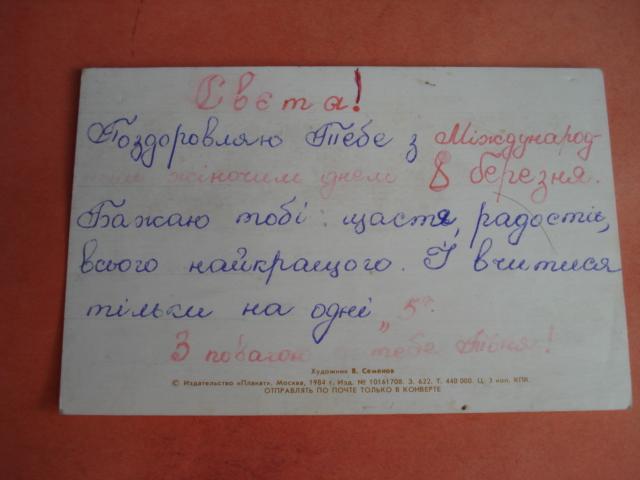 Свєта!
Поздоровляю Тебе з Міжднународ-
ним жіночим днем 8 березня.
Бажаю тобі: щастя, радостів,
всього найкращого. І вчитися
тільки на одні „5".
З повагою до тебе
Художник В. Семенов
© Издательство «Плакат». Москва, 1984 г. Изд. № 10161708. З. 622. Т. 440 000. Ц. 3 коп. КПК.
ОТПРАВЛЯТЬ ПО ПОЧТЕ ТОЛЬКО В КОНВЕРТЕ